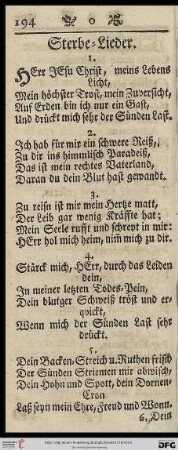 194 o
Sterbe-Lieder.
1.
HErr JEsu Christ, meins Lebens
Licht,
Mein höchster Trost, mein Zuversicht,
Auf Erden bin ich nur ein Gast,
Und drückt mich sehr der Sünden Last.
2.
Ich hab für mir ein schwere Reiß,
Zu dir ins himmlisch Paradeiß,
Das ist mein rechtes Vaterland,
Daran du dein Blut hast gewandt.
3.
Zu reisn ist mir mein Hertze matt,
Der Leib gar wenig Kräffte hat;
Mein Seele rufft und schreyt in mir:
HErr hol mich heim, nim̄ mich zu dir.
4.
Stärck mich, HErr, durch das Leiden
dein,
In meiner letzten Todes-Pein,
Dein blutger Schweiß tröst und er-
qvickt,
Wenn mich der Sünden Last sehr
drückt.
5.
Dein Backen-Streich u. Ruthen frisch
Der Sünden Striemen mir abwisch,
Dein Hohn und Spott, dein Dornen-
Cron
Laß seyn mein Ehre, Freud und Wonn.
6. Dein
DFG